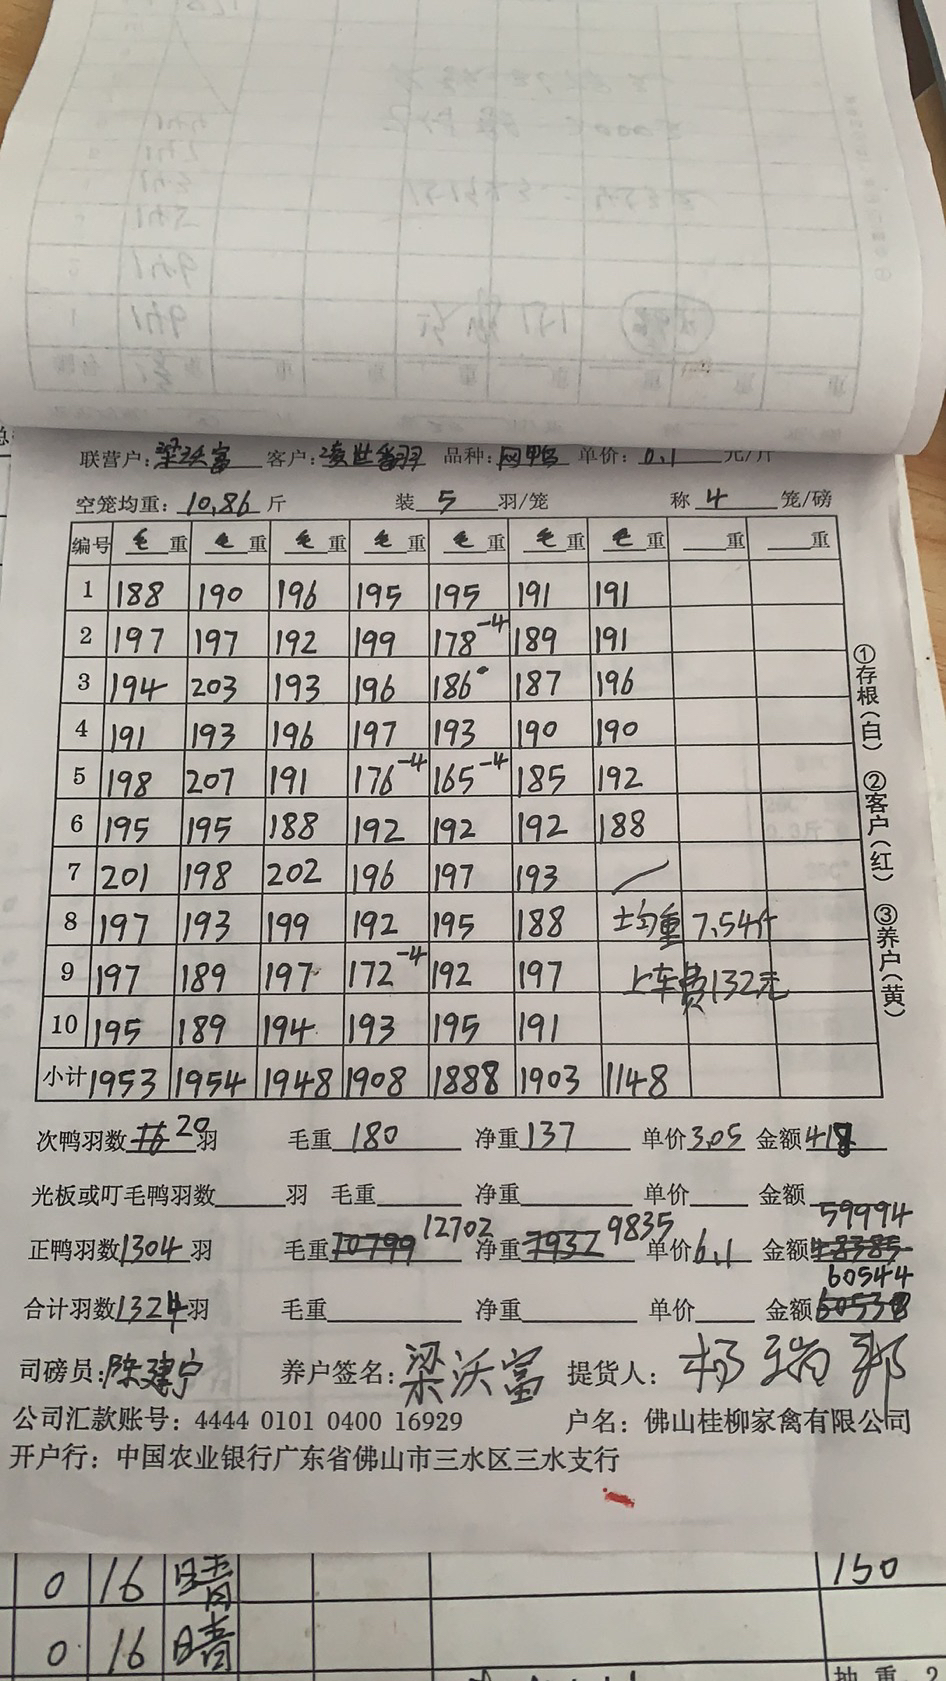 联营户：梁沃富 客户：凌世翻 品种：网鸭 单价：6.1 元/斤
空笼均重：10.86 斤 装 5 羽/笼 称 4 笼/磅
编号 毛重 毛重 毛重 毛重 毛重 毛重 毛重 重 重
1 188 190 196 195 195 191 191
2 197 197 192 199 178-4 189 191
3 194 203 193 196 186 187 196
4 191 193 196 197 193 190 190
5 198 207 191 176-4 165-4 185 192
6 195 195 188 192 192 192 188
7 201 198 202 196 197 193
8 197 193 199 192 195 188 均重 7.54斤
9 197 189 197 172-4 192 197 上车费132元
10 195 189 194 193 195 191
小计 1953 1954 1948 1908 1888 1903 1148
①存根（白） ②客户（红） ③养户（黄）
次鸭羽数 20 羽 毛重 180 净重 137 单价 3.05 金额 418
光板或叮毛鸭羽数 羽 毛重 净重 单价 金额
正鸭羽数 1304 羽 毛重 10799 12702 净重 7932 9835 单价 6.1 金额 48385 59994
合计羽数 1324 羽 毛重 净重 单价 金额 60538 60544
司磅员：陈建宁 养户签名：梁沃富 提货人：杨瑞邦
公司汇款账号：4444 0101 0400 16929 户名：佛山桂柳家禽有限公司
开户行：中国农业银行广东省佛山市三水区三水支行
0 16 晴 150
0 16 晴
抽 重 2